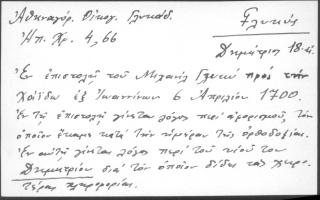 Ἀθηναγόρ. Οἰκογ. Γλυκάδ.
Γλυκύς
Ἠπ. Χρ. 4, 66
Δημήτριος 18 αἰ.
Ἐν ἐπιστολῇ τοῦ Μιχαὴλ Γλυκύ πρὸς τὴν
ἐξ Ἰωαννίνων 6 Ἀπριλίου 1700.
Ἐν τῇ ἐπιστολῇ γίνεται λόγος περὶ ἀφορισμοῦ, τὸν
ὁποῖον ἔκαμε κατὰ τὴν ἡμέραν τῆς ὀρθοδοξίας.
Ἐν αὐτῇ γίνεται λόγος περὶ τοῦ υἱοῦ του
Δημητρίου διὰ τὸν ὁποῖον δίδει τὰς
πληροφορίας.